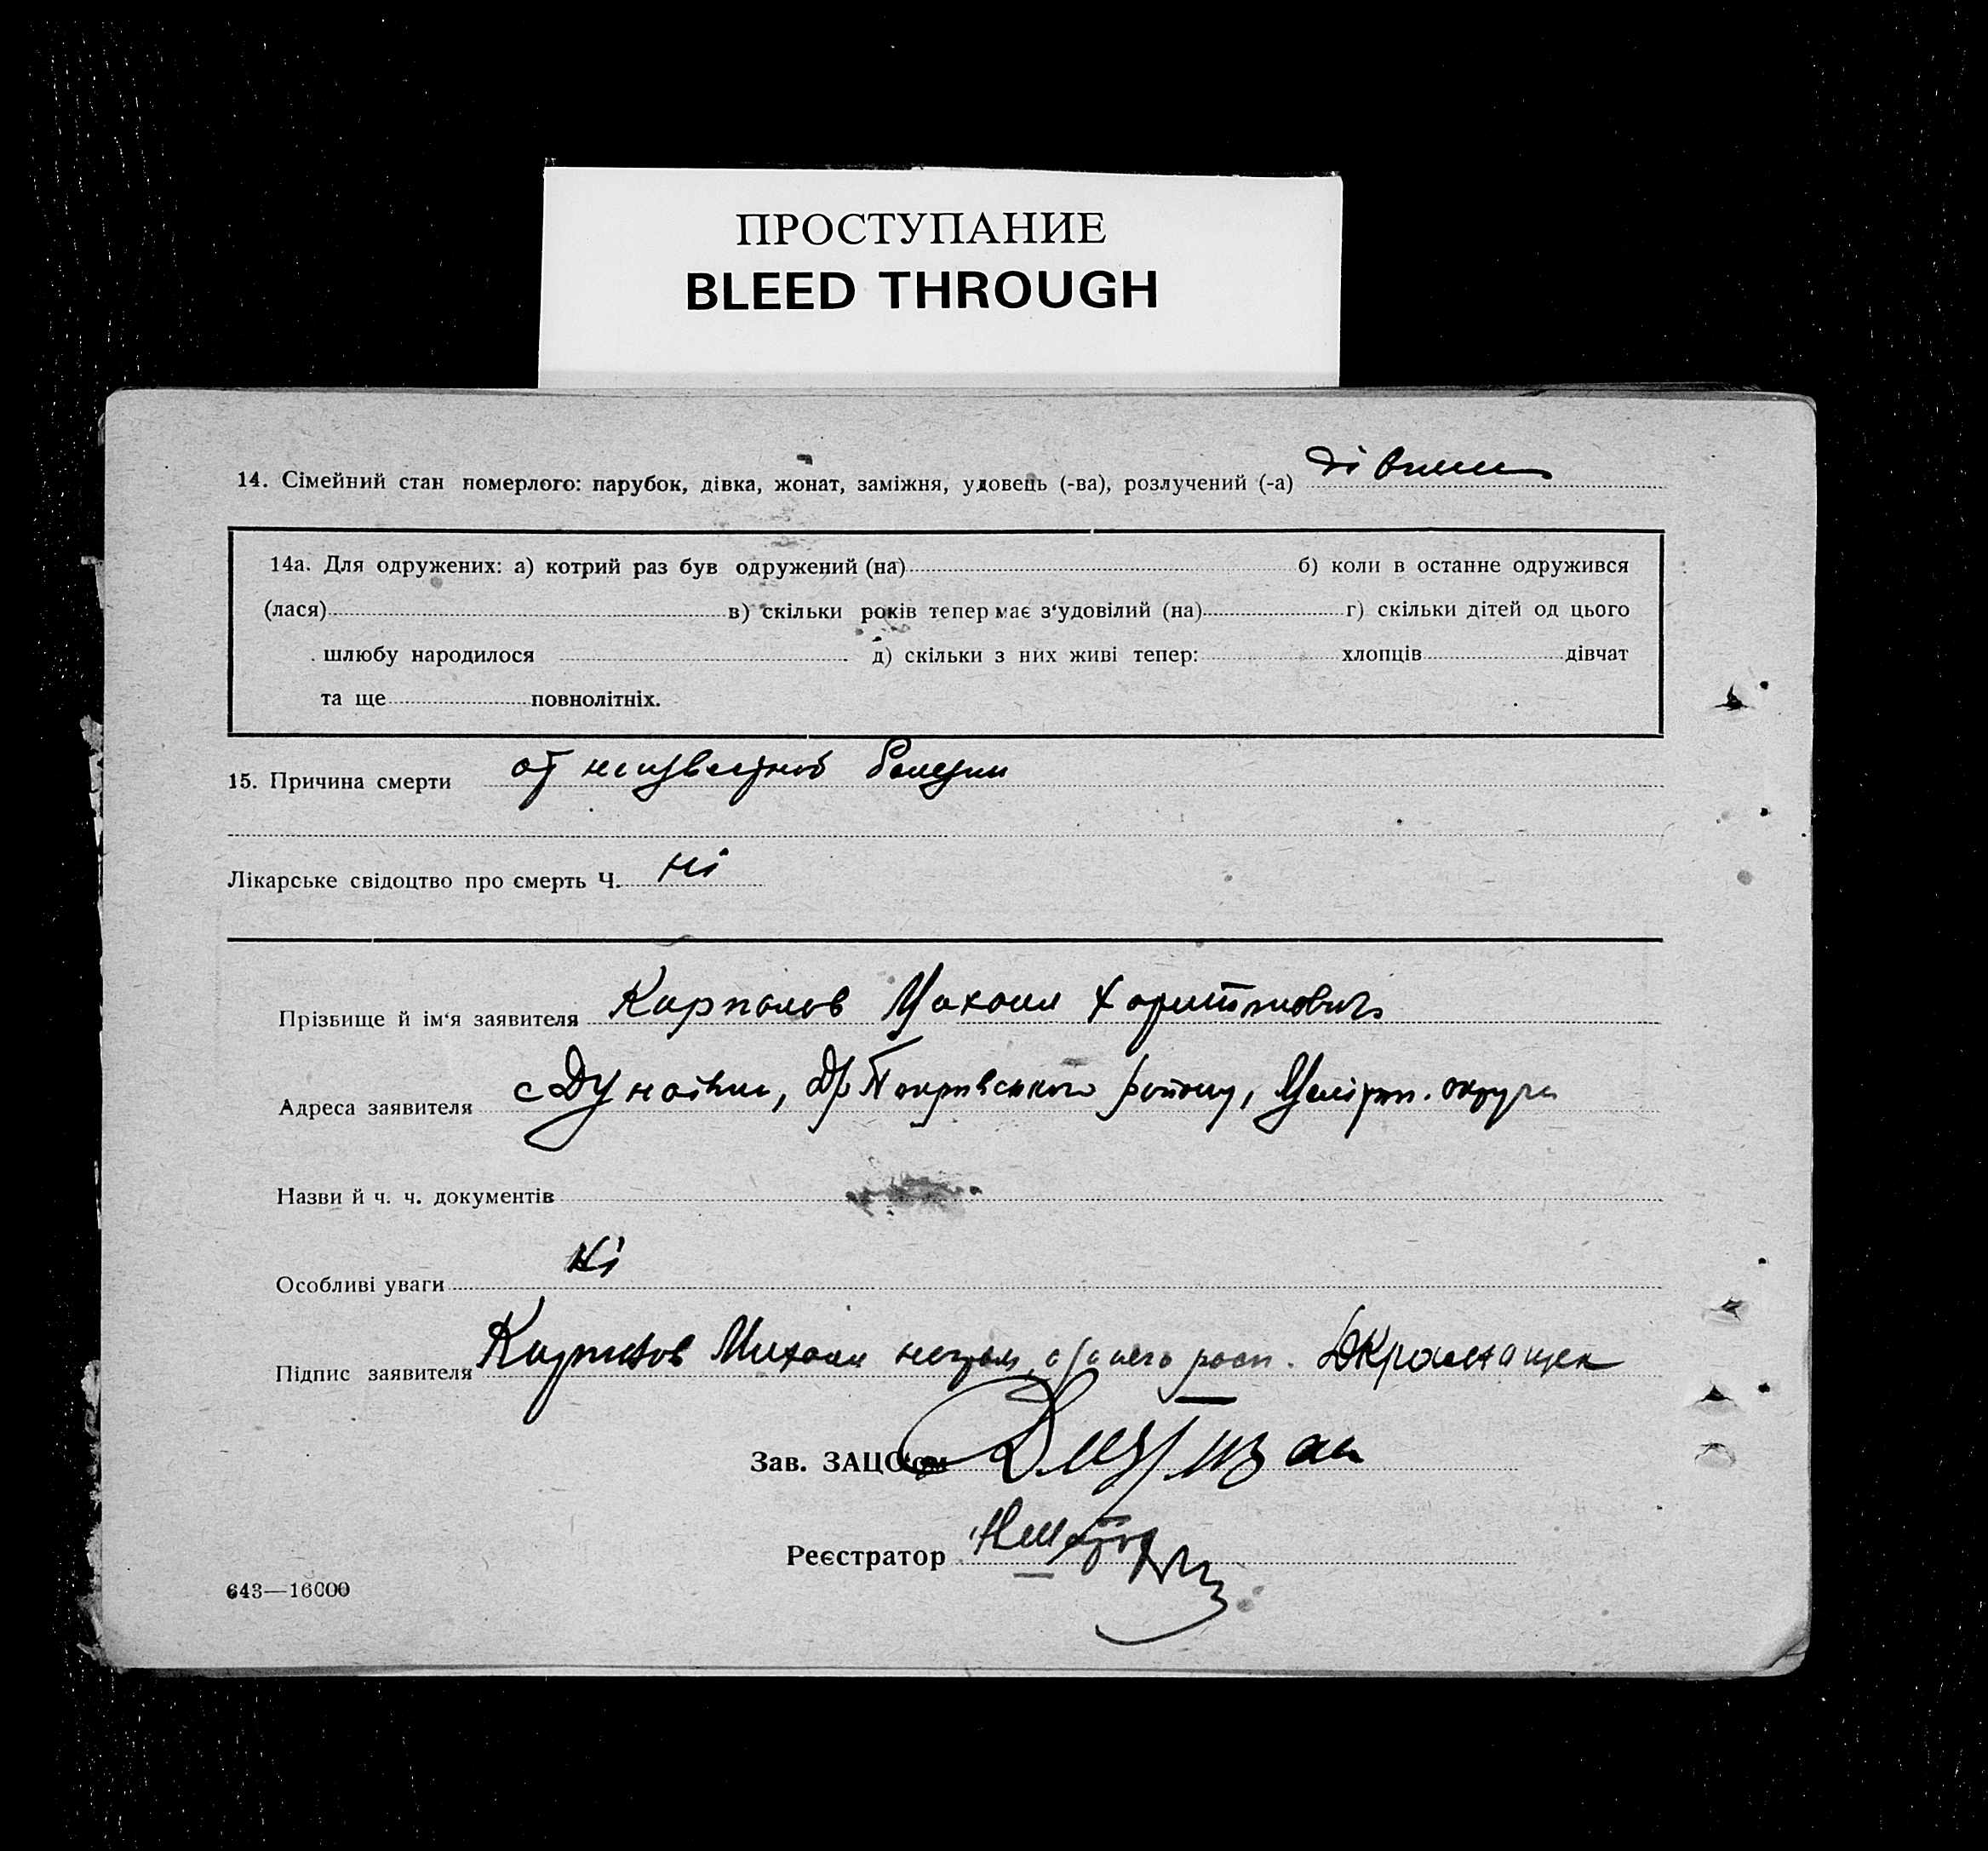 ПРОСТУПАНИЕ
BLEED THROUGH
14. Сімейний стан померлого: парубок, дівка, жонат, заміжня, удовець (-ва), розлучений (-а)
14а. Для одружених: а) котрий раз був одружений (на) б) коли в останне одружився
(лася) в) скільки років тепер має з'удовілий (на) г) скільки дітей од цього
шлюбу народилося д) скільки з них живі тепер: хлопців дівчат
та ще повнолітніх.
15. Причина смерти от неизвестной болезни
Лікарське свідоцтво про смерть Ч. ні
Прізвище й ім'я заявителя Михаил
Адреса заявителя с Дунаівки, району, округи
Назви й ч. ч. документів
Особливі уваги ні
Підпис заявителя Михаил
Зав. ЗАЦС'ом
Реєстратор
643—16000